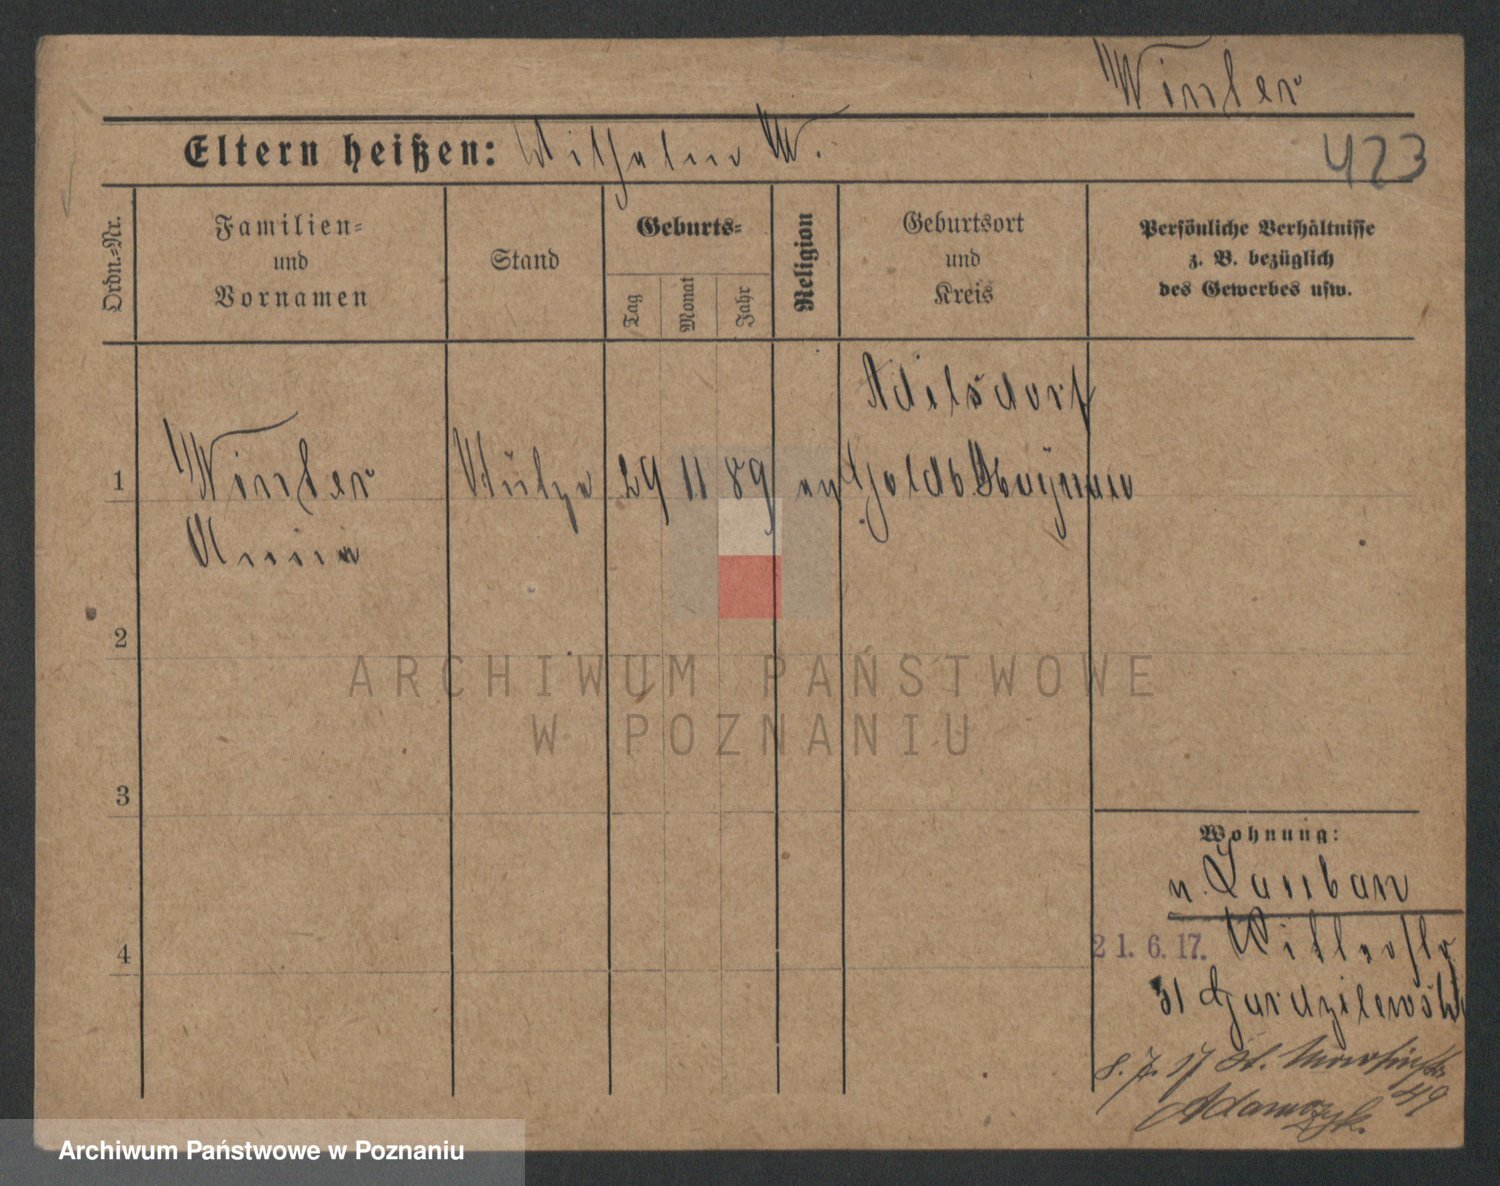 Winkler
Eltern heißen: Wilhelm W.
423
Ordn.-Nr.
Familien-
und
Vornamen
Stand
Geburts-
Tag
Monat
Jahr
Religion
Geburtsort
und
Kreis
Persönliche Verhältnisse
z. B. bezüglich
des Gewerbes usw.
Adelsdorf
1
Winkler Stütze 29 11 89 ev Goldb. Haynau
Anna
2
ARCHIWUM PAŃSTWOWE
W POZNANIU
3
Wohnung:
v. Lauban
4
21. 6. 17.
31
8. 7. 17 St.
49
Adamczyk.
Archiwum Państwowe w Poznaniu